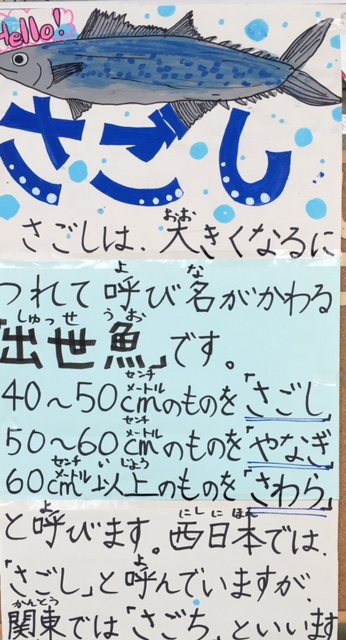 Hello!
さごし
さごしは、大きくなるに
つれて呼び名がかわる
「出世魚」です。
40～50cmのものを「さごし」
50～60cmのものを「やなぎ
60cm以上のものを「さわら」
と呼びます。西日本では、
「さごし」と呼んでいますが、
関東では「さごち」といいます